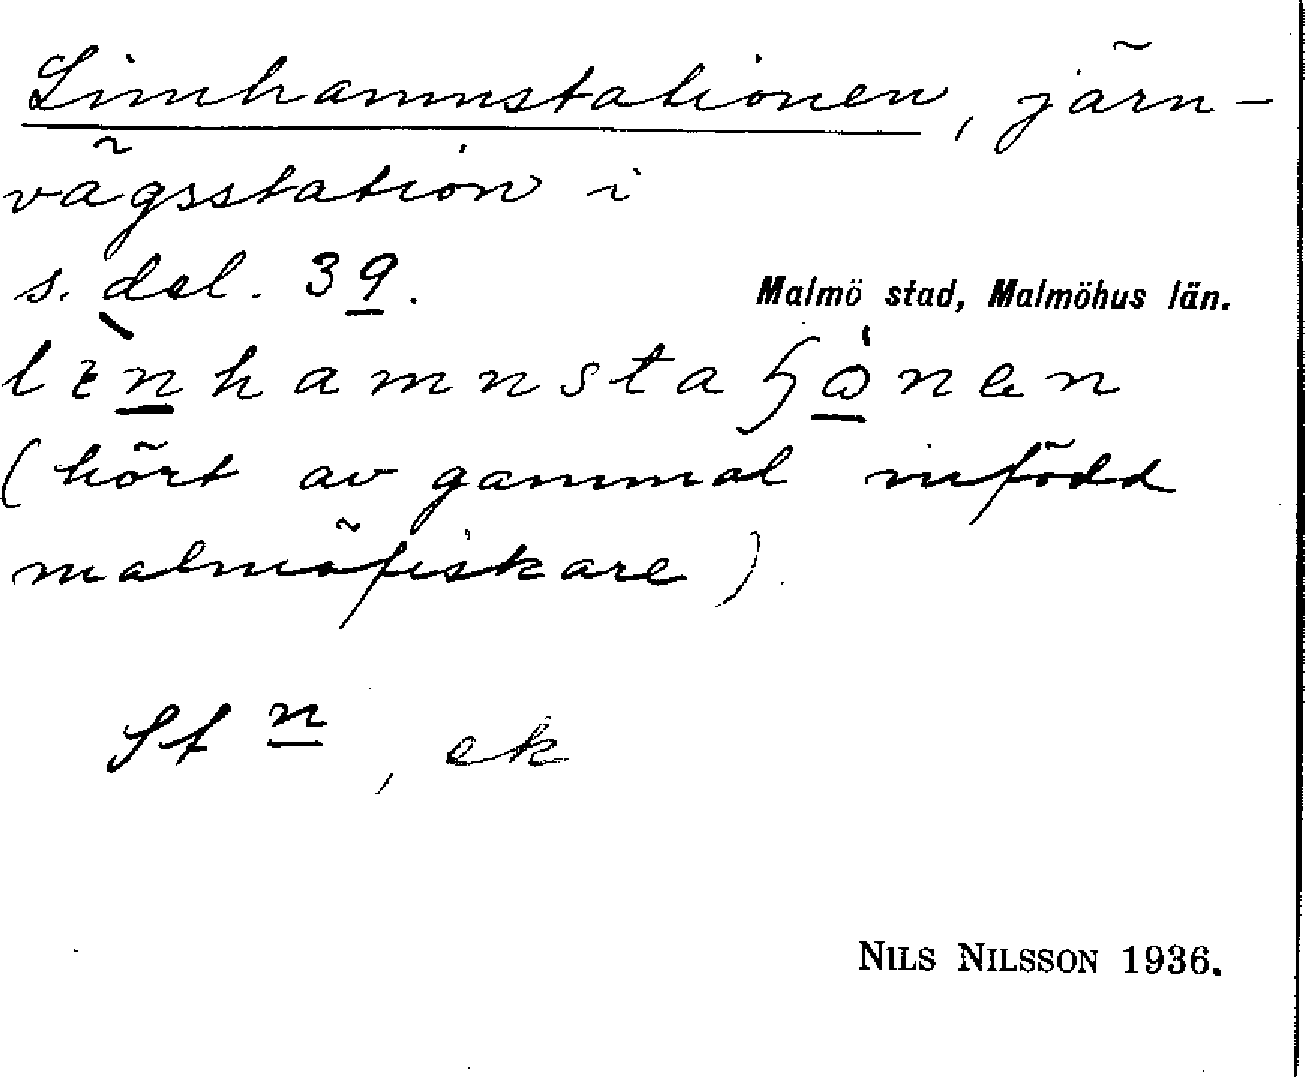 Limhamnstationen, järn-
vägsstation i
s. del. 39.
Malmö stad, Malmöhus län.
(hört av gammal infödd
malmöfiskare).
St n, ek
NILS NILSSON 1936.